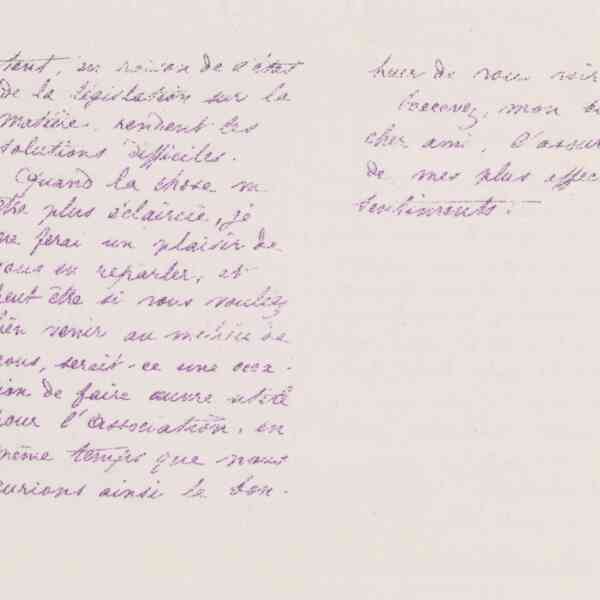 tout, en raison de l'état
de la législation sur la
matière rendent les
solutions difficiles.
Quand la chose
être plus éclaircie, je
me ferai un plaisir de
vous en reparler, et
peut être si vous vouliez
bien venir au milieu de
nous, serait-ce une occa-
ion de faire œuvre utile
pour l'association, en
même temps que nous
aurions ainsi le bon-
heur de vous voir
Recevez, mon
cher ami, l'assur
de mes plus affec
sentiments.